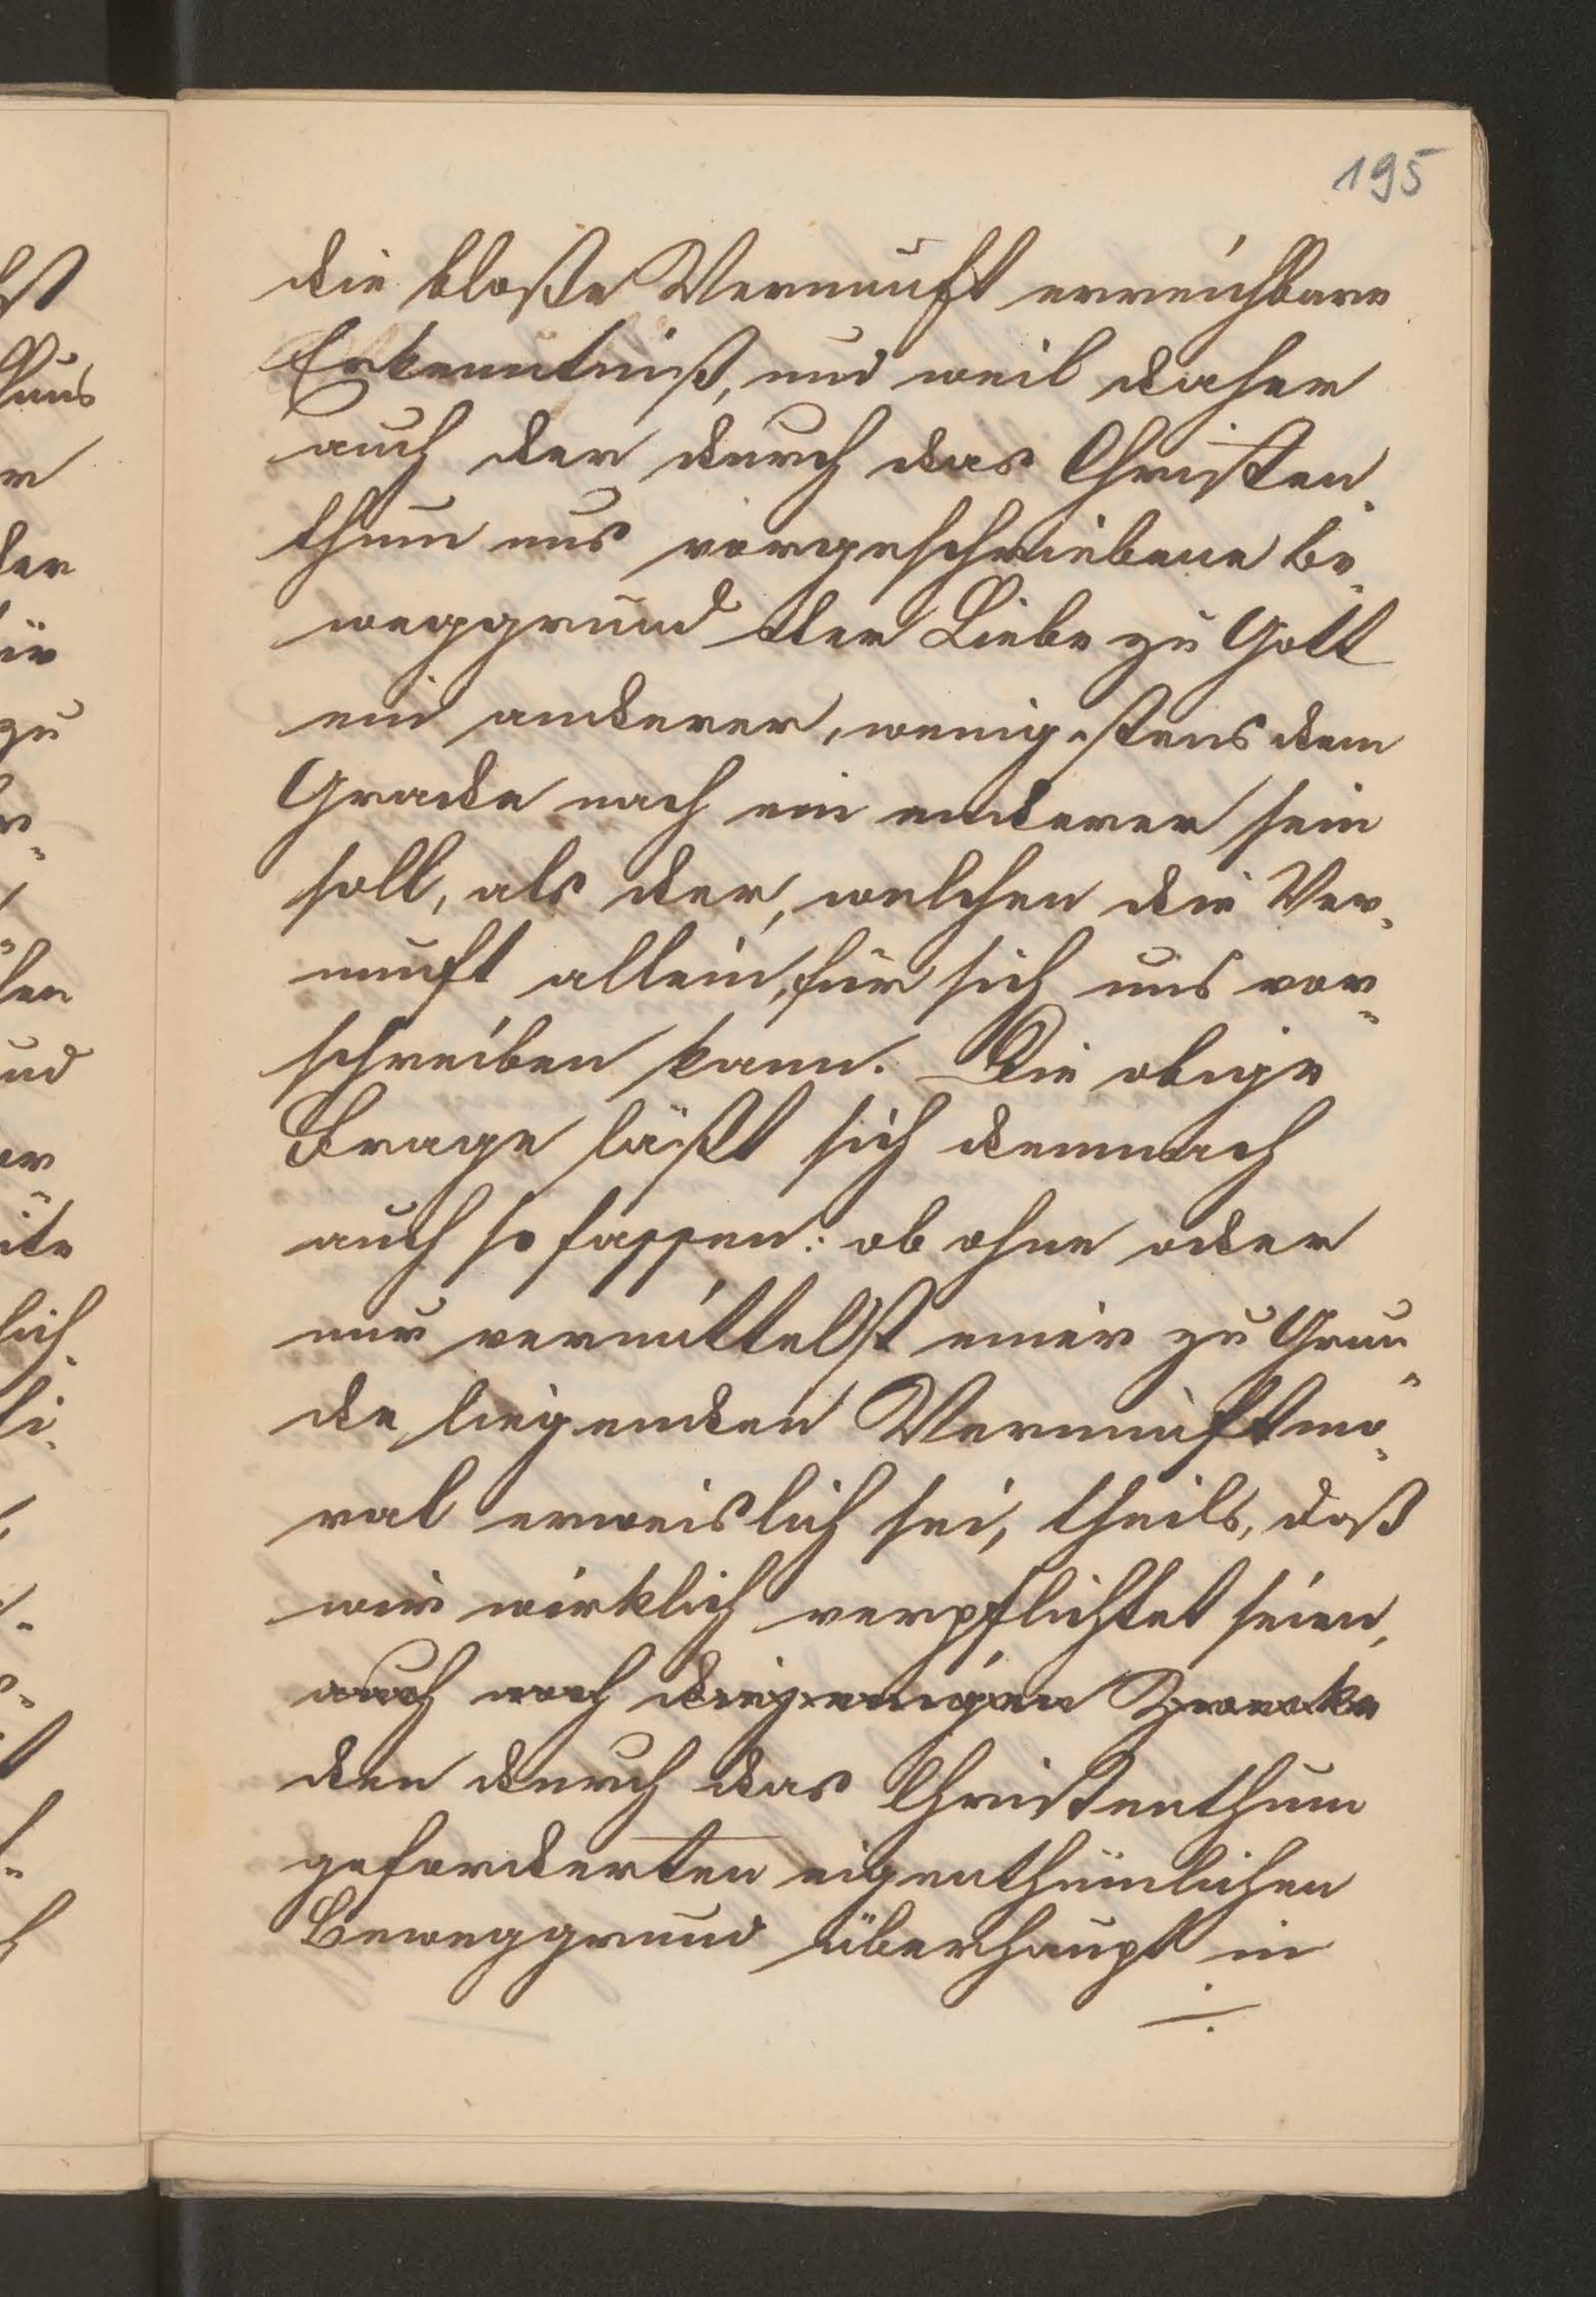 195
die bloße Vernunft erreichbare
Erkenntniß, und weil daher
auch der durch das Christen-
thum uns vorgeschriebene Be-
weggrund der Liebe zu Gott
ein anderer, wenigstens dem
Grade nach ein anderer sein
soll, als der, welchen die Ver-
nunft allein, für sich uns vor-
schreiben kann. Die obige
Frage läßt sich demnach
auch so fassen: ob ohne oder
nur vermittelst einer zu Grun-
de liegenden Vernunftmo-
ral erweislich sei, theils, daß
wir wirklich verpflichtet seien,
auch noch diejenigen Zwecke
den durch das Christenthum
geforderten eigenthümlichen
Beweggrund überhaupt in